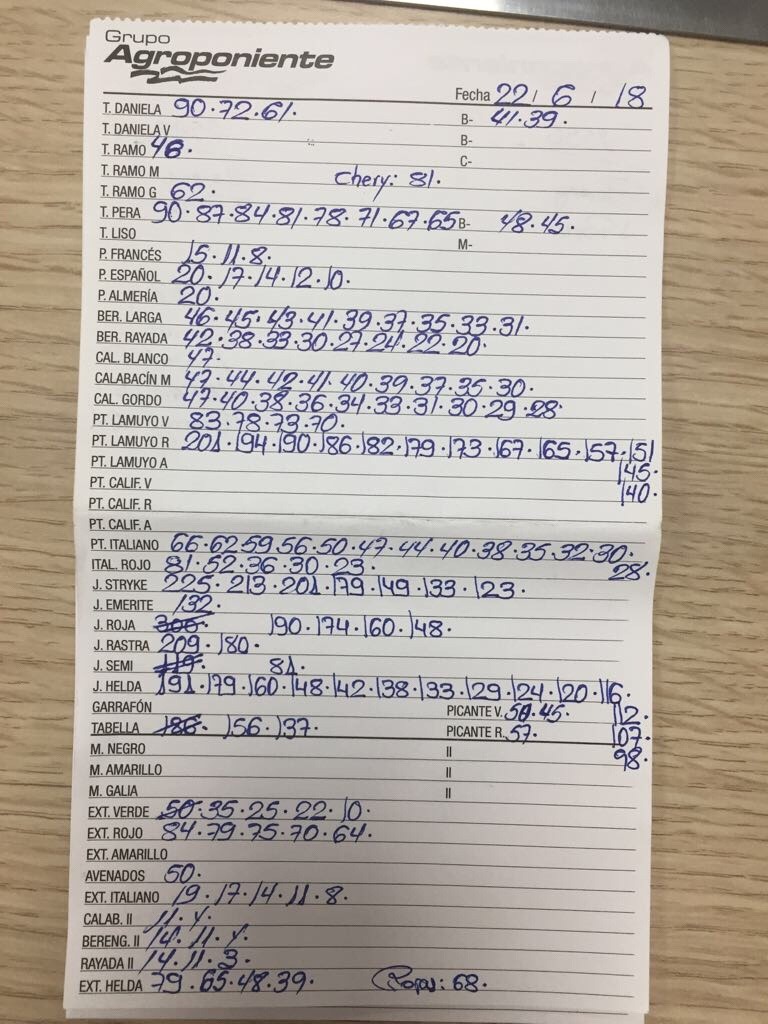 Grupo
Agroponiente
Fecha 22 / 6 / 18
T. DANIELA 90·72·61· B- 41·39·
T. DANIELA V B-
T. RAMO 46· C-
T. RAMO M Chery: 81·
T. RAMO G 62·
T. PERA 90·87·84·81·78·71·67·65 B- 48·45·
T. LISO M-
P. FRANCÉS 15·11·8·
P. ESPAÑOL 20·17·14·12·10·
P. ALMERÍA 20·
BER. LARGA 46·45·43·41·39·37·35·33·31·
BER. RAYADA 42·38·33·30·27·24·22·20·
CAL. BLANCO 47·
CALABACÍN M 47·44·42·41·40·39·37·35·30·
CAL. GORDO 47·40·38·36·34·33·31·30·29·28·
PT. LAMUYO V 83·78·73·70·
PT. LAMUYO R 201·194·190·186·182·179·173·167·165·157·151
PT. LAMUYO A 145·
PT. CALIF. V 140·
PT. CALIF. R
PT. CALIF. A
PT. ITALIANO 66·62 59·56·50·47·44·40·38·35·32·30·
ITAL. ROJO 81·52·36·30·23· 28·
J. STRYKE 225·213·201·179·149·133·123·
J. EMERITE 132·
J. ROJA 300· 190·174·160·148·
J. RASTRA 209·180·
J. SEMI 119· 81·
J. HELDA 191·179·160·148·142·138·133·129·124·120·116·
GARRAFÓN PICANTE V. 50·45· 112·
TABELLA 186· 156·137· PICANTE R. 57· 107·
M. NEGRO II 98·
M. AMARILLO II
M. GALIA II
EXT. VERDE 50·35·25·22·10·
EXT. ROJO 84·79·75·70·64·
EXT. AMARILLO
AVENADOS 50·
EXT. ITALIANO 19·17·14·11·8·
CALAB. II 11·Y·
BERENG. II 14·11·Y·
RAYADA II 14·11·3·
EXT. HELDA 79·65·48·39· Rojas: 68·